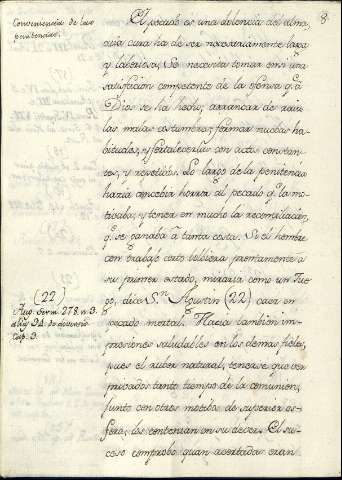 8
Conveniencia de las
penitencias.
El pecado es una dolencia del alma,
cuia cura ha de ser necesariamente larga
y laboriosa. Se necesita tomar en si una
satisfacion competente de la ofensa q.e à
Dios se ha hecho, arrancar de raiz
las malas costumbres, formar nuebos ha-
bitudes, y fortalecerlas con actos constan-
tes, y repetidos. Lo largo de la penitencia
hacia concebir horror al pecado q.e la mo-
tivaba, y tener en mucho la reconciliacion,
q.e se ganaba à tanta costa. Si el hombre
con trabajo corto bolviera prontamente a
su primer estado, miraria como un Jue-
go, dice S.n Agustin (22) caer en
pecado mortal. Hacia tambien im-
presiones saludables en los demas fieles,
pues el rubor natural, tenerse que ver
privados tanto tiempo de la comunion,
junto con otros motibos de superior es-
fera, los contenian en su deber. El su-
ceso comprobo quan acertadas eran
(22)
Aug. Serm. 278. n. 3.
Cap. 3.